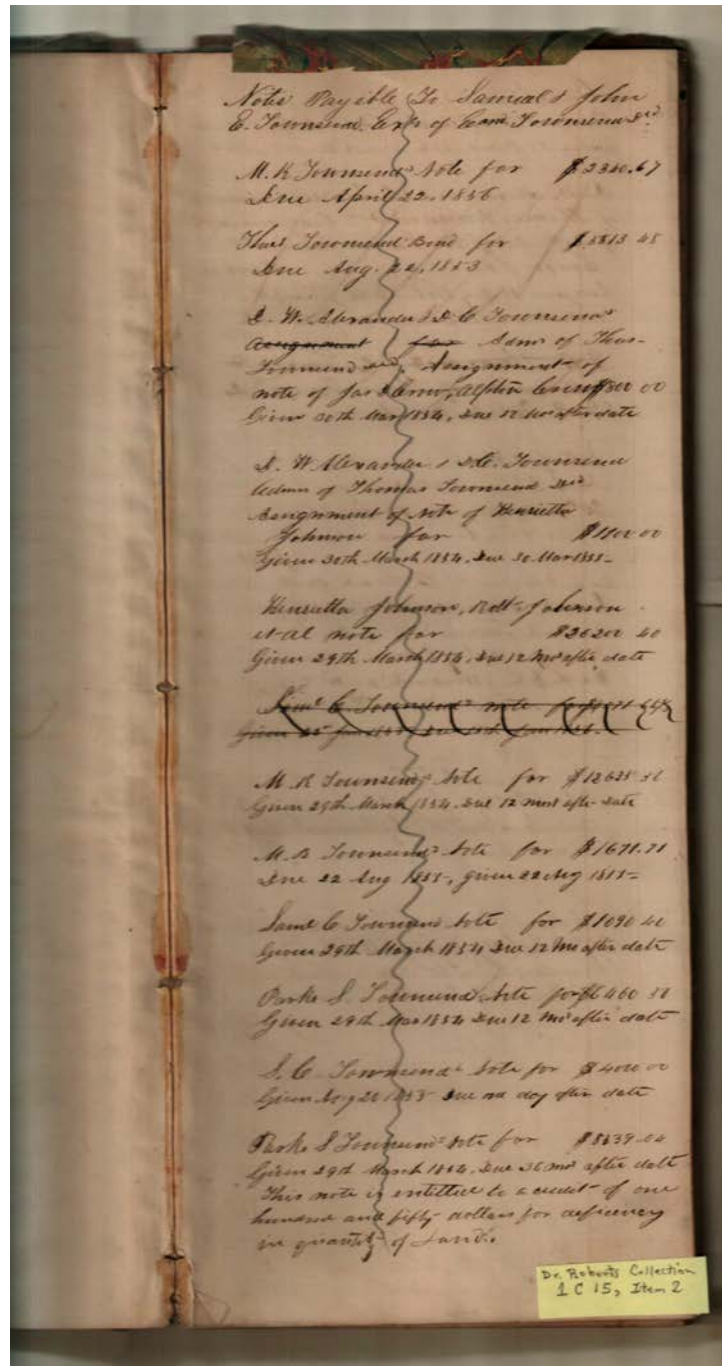 Notes Payible To Samuel & John
E. Townsend, Exrs of Edmd Townsend Decd
M. K. Townsends Note for $2340.67
Due April 22, 1856
Thos Townsend Bond for 48
Due Aug. 22, 1853
D. W. Alexander & D C Townsend
Assignment for Admr of Thos
Townsend Decd, Assignment of
note of Jas 800 00
Given 30th Mar 1854, Due 12 Mos after date
D. W. Alexander & D.C. Townsend
Admrs of Thomas Townsend Decd
Assignment of Note of Henrietta
Johnson for $1100 00
Given 30th March 1854, Due 30 Mar 1855-
Henrietta Johnson, Robt Johnson
et al note for $26200 40
Given 29th March 1854, Due 12 Mos after date
Saml C Townsend note for
Given 25
M K Townsends Note for
Given 29th March 1854, Due 12 Mos after date
Townsends Note for $1671.71
Due 22 Aug 1855, given 22 Aug
Saml C Townsend Note for $1090 40
Given 29th March 1854 Due 12 Mo after date
Parks S. Townsends Note for 460
Given 29th Mar 1854 Due 12 Mos after date
S. C. Townsends Note for $400 00
Given Due one day after date
Parks S Townsends Note for $8639.04
Given 29th March 1854, Due 36 mos after date
This note is entitled to a credit of one
hundred and fifty dollars for deficiency
in quantity of Land.
Dr. Roberts Collection
1 C 15, Item 2